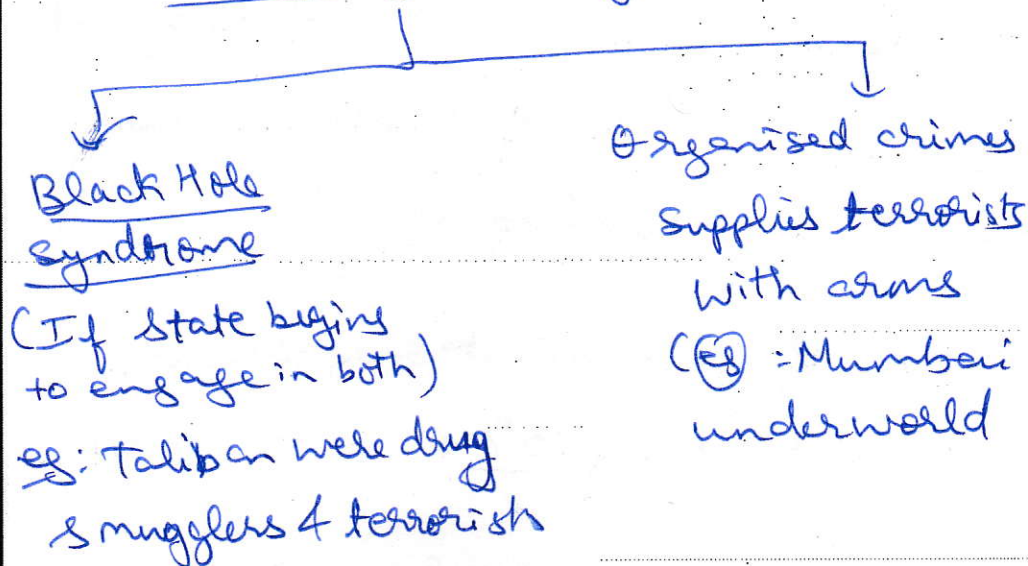 Black Hole
Syndrome
(If State begins
to engage in both)
eg: Taliban were drug
smugglers & terrorists
Organised crimes
supplies terrorists
with arms
(Eg :- Mumbai
underworld